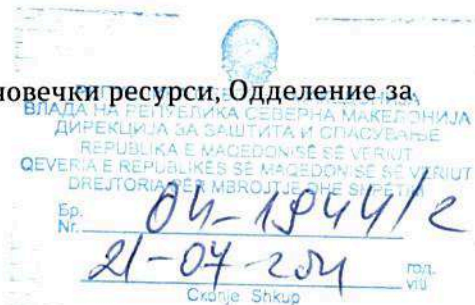 човечки ресурси, Одделение за
ВЛАДА НА РЕПУБЛИКА СЕВЕРНА МАКЕДОНИЈА
ДИРЕКЦИЈА ЗА ЗАШТИТА И СПАСУВАЊЕ
REPUBLIKA E MAQEDONISË SË VERIUT
QEVERIA E REPUBLIKËS SË MAQEDONISË SË VERIUT
DREJTORIA PËR MBROJTJE DHE SHPËTIM
Бр.
Nr. 04-1944/2
21-07-
год.
viti
Скопје Shkup